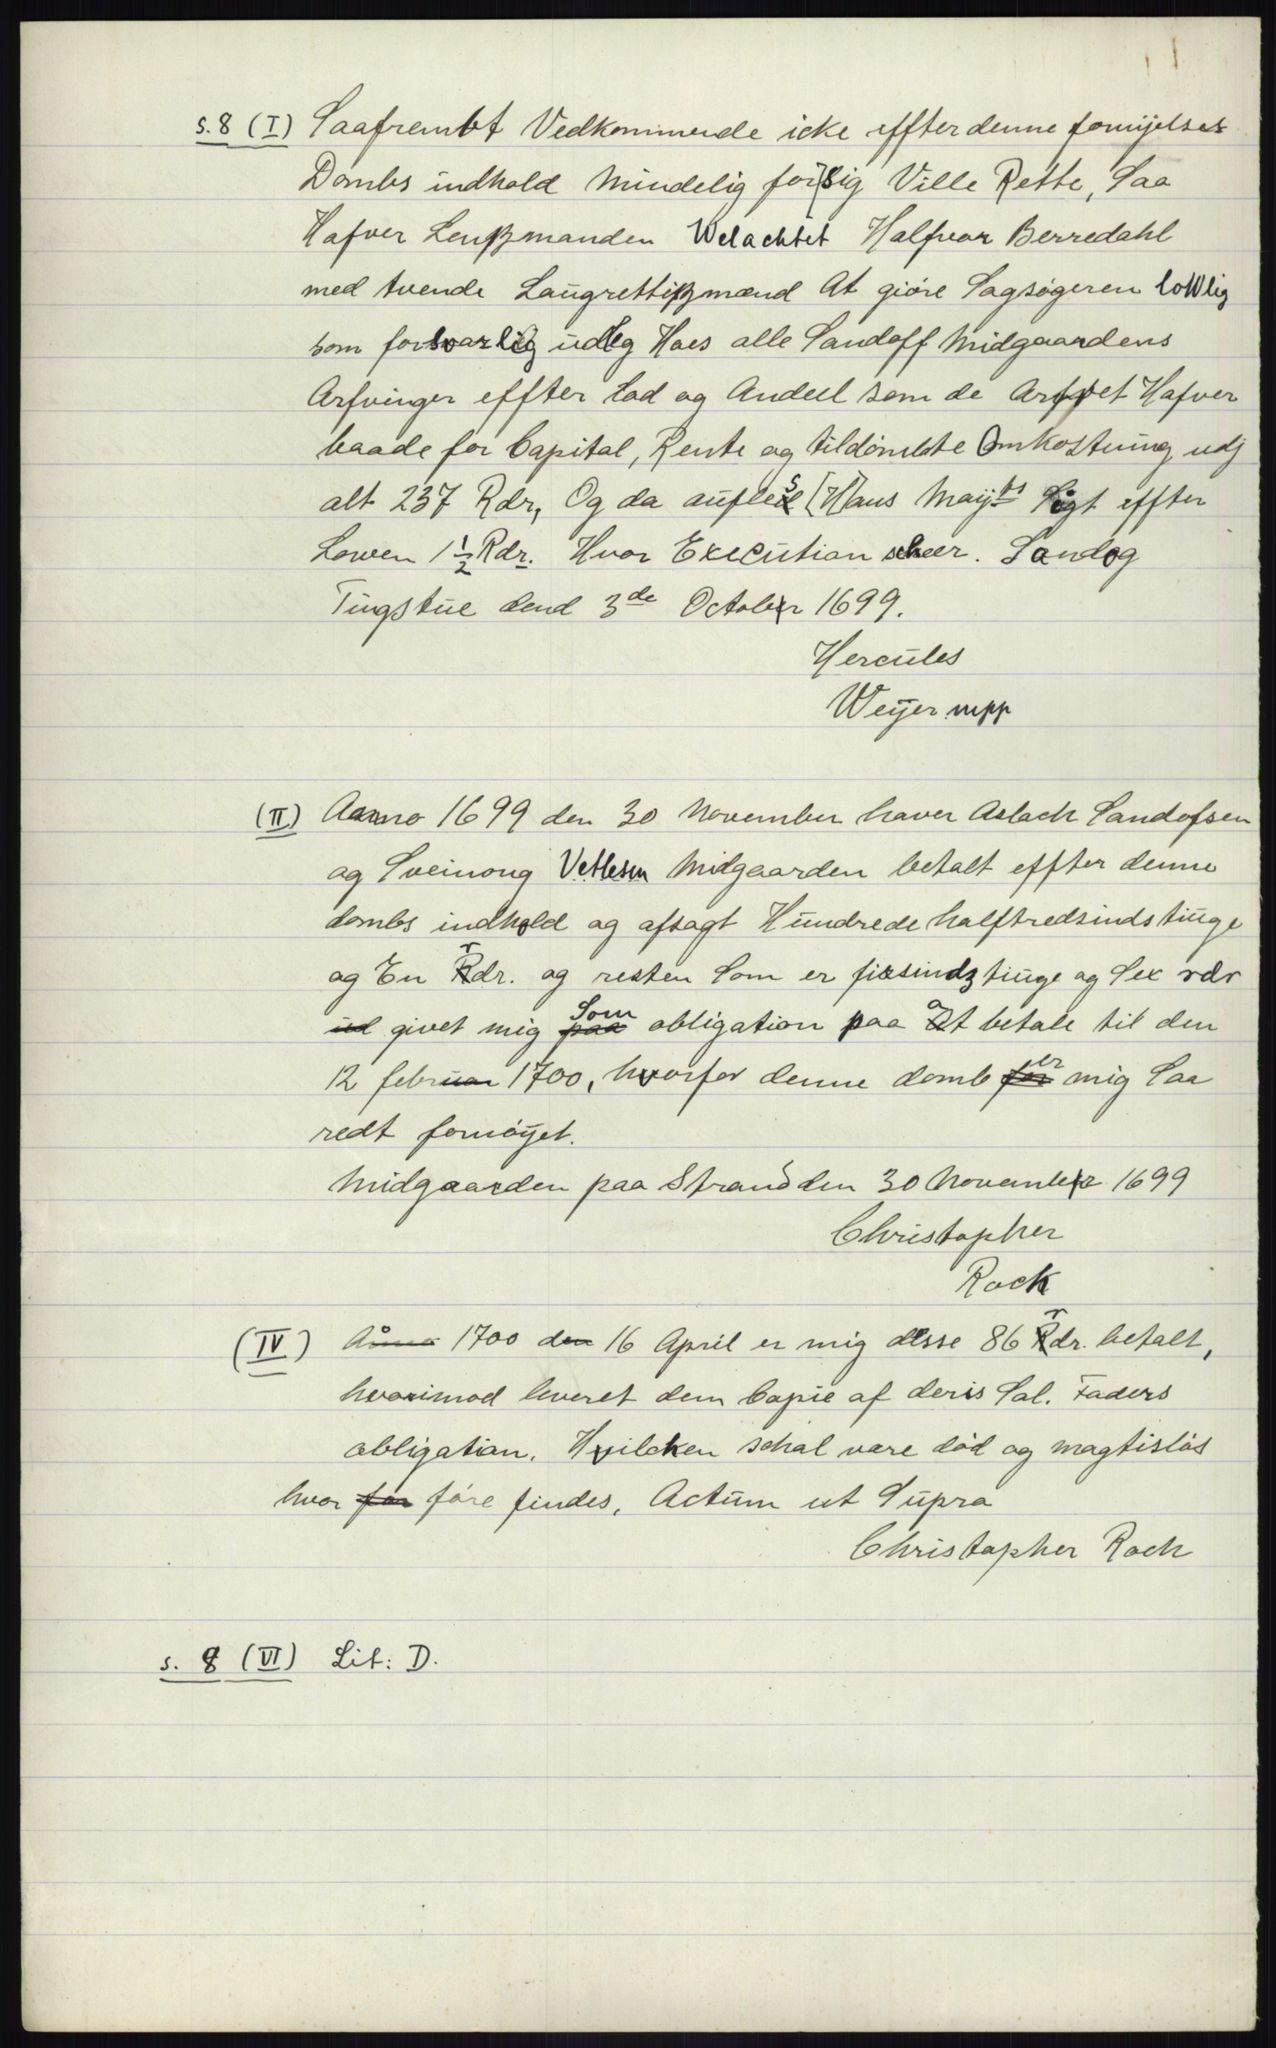 s. 8 (I) Saafrembt Vedkommende icke effter denne fornijelses
Dombs indhold Mindelig for sig Ville Rette, Saa
Hafver Lenßmanden Welachtet Halfvor Berredahl
med tvende Laugrettißmænd At giöre Sagsögeren lowlig
som forsvarlig udleg Hoes alle Sandoff Midgaardens
Arfvinger effter Lod og Andeel som de Arfvet Hafver
baade for Capital, Rente og tildömbte Omkostning udj
alt 237 Rdr, Og da [H]ans Maijts Sigt effter
Lowen 1 1/2 Rdr. Hvor Execution scheer. Sandog
Tingstue dend 3de October 1699.
Hercules
Weijer mpp
(II) Anno 1699 den 30 November haver Aslach Sandofsen
og Sveinong Vetlesen Midgaarden betalt effter denne
dombs indhold og afsagt Hundrede halftredsindstiuge
og En rdr. og resten Som er firsindztiuge og Sex rdr
ud givet mig Som obligation paa at betale til den
12 febr 1700, hvorfor denne domb er mig Saa
redt fornöijet.
Midgaarden paa Strand den 30 November 1699
Christopher
Rock
(IV) Aö 1700 den 16 April er mig disse 86 rdr. betalt,
hvorimod leveret dem Copie af deris Sal. Faders
obligation. Hvilcken schal være död og magtislös
hvor före findes, Actum ut Supra
Christopher Roch
s. 8 (VI) Lit: D.